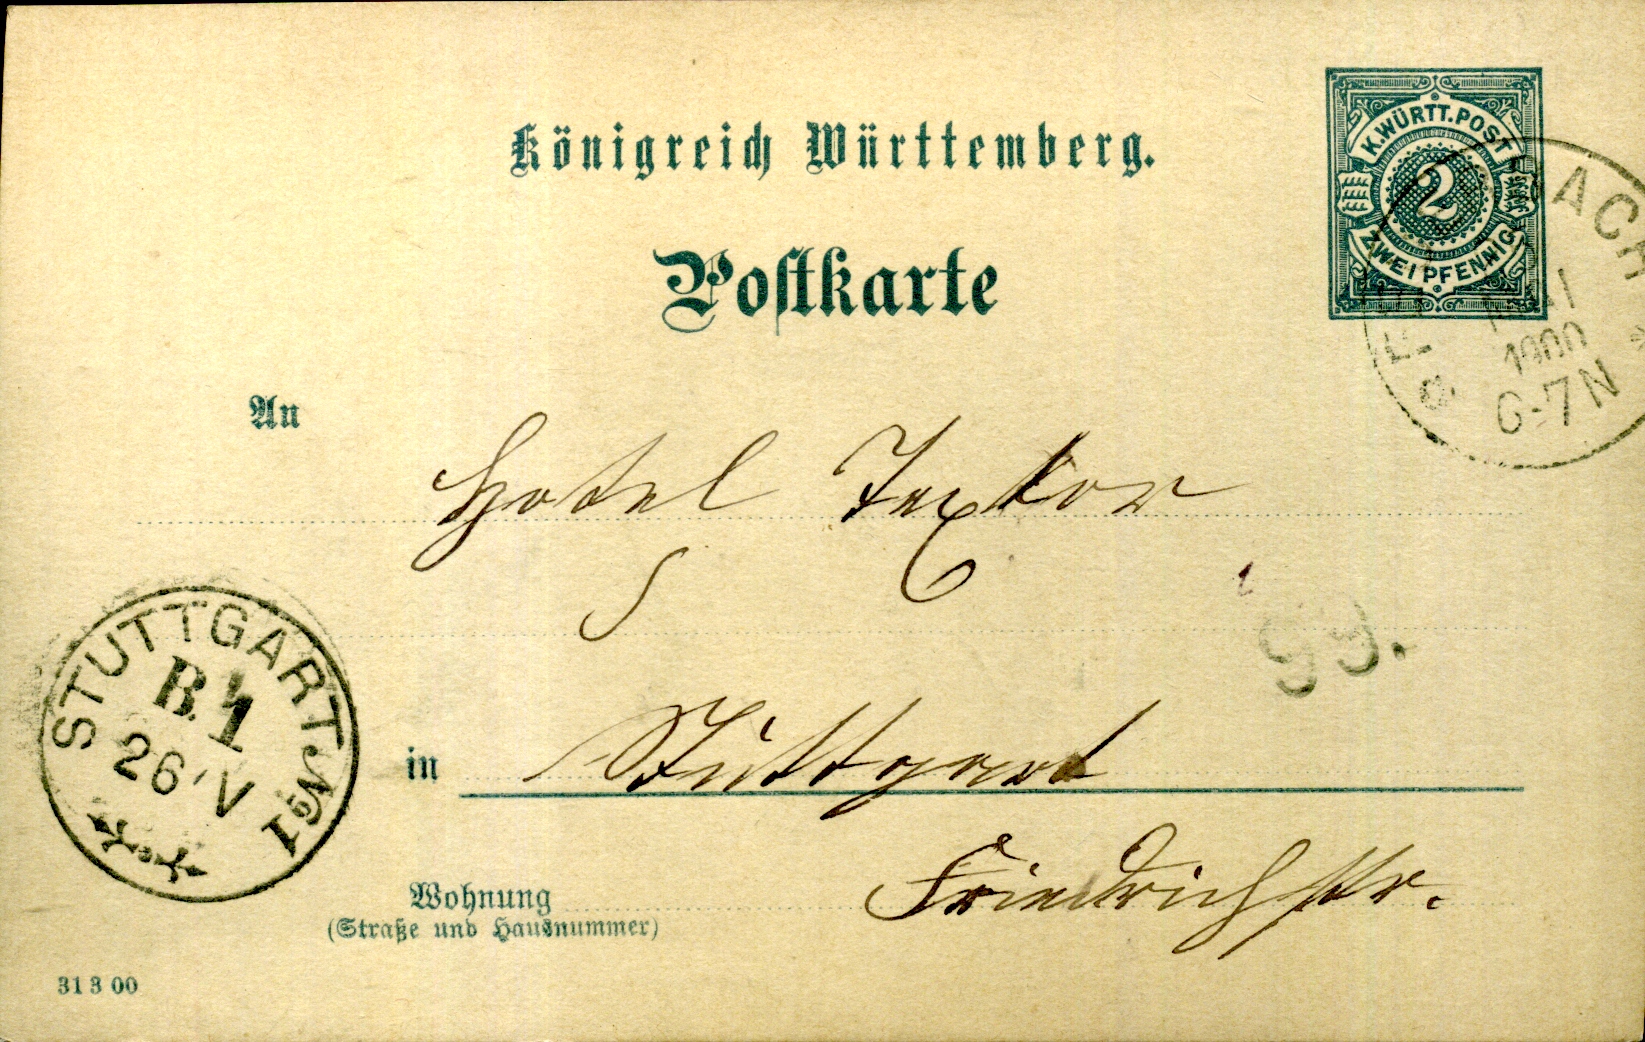 Königreich Württemberg.
K. WÜRTT. POST
2
ZWEI PFENNIG
Postkarte
MAI
1900
6-7 N
An
Hotel Textor
99.
STUTTGART No 1
B. 1
26/V
in Stuttgart
Wohnung Friedrichstr.
(Straße und Hausnummer)
31 3 00